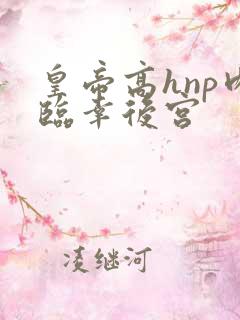 皇帝高hnp
臨幸後宮
凌继河